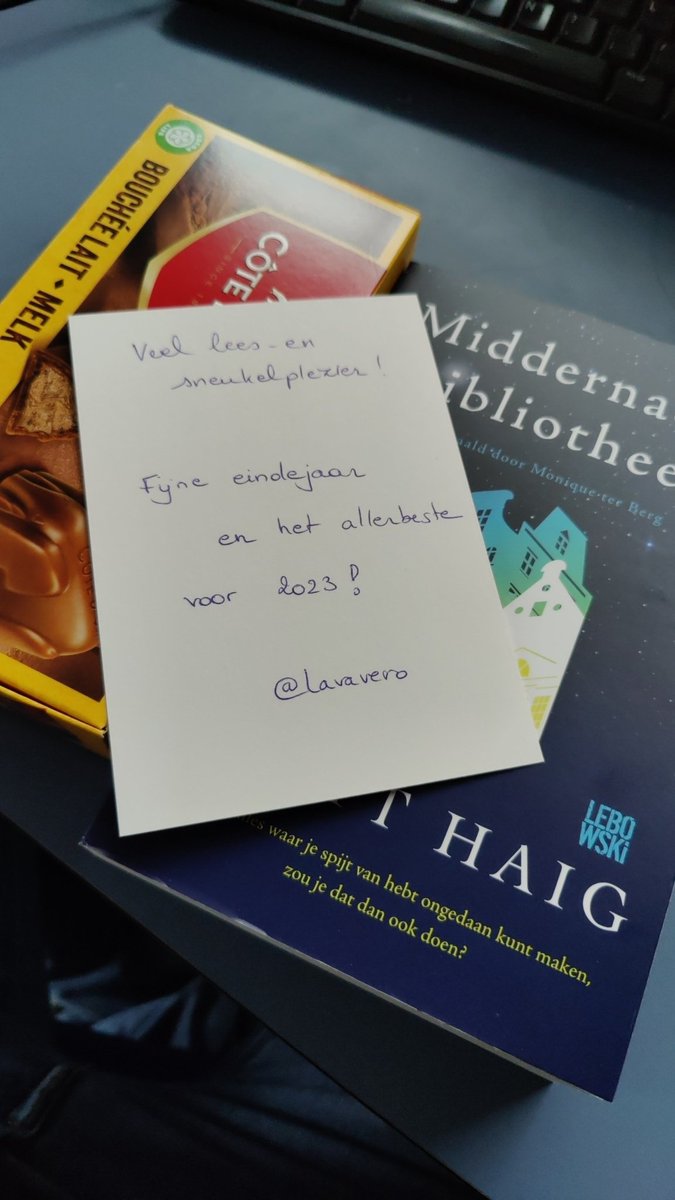 BOUCHÉE LAIT • MELK
CÔTE
SINCE
Veel lees-en
sneukelplezier!
Fijne eindejaar
en het allerbeste
voor 2023!
@lavavero
Midderna
ibliothee
aald door Monique ter Berg
T HAIG
LEBO
WSKI
es waar je spijt van hebt ongedaan kunt maken,
zou je dat dan ook doen?